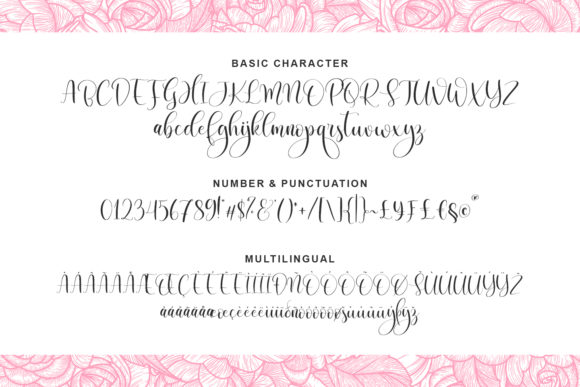 BASIC CHARACTER
ABCDEFGHIJKLMNOPQRSTUVWXYZ
abcdefghijklmnopqrstuvwxyz
NUMBER & PUNCTUATION
0123456789!"#$%&'()*+/[\]{|}~£¥₣₤€§©®
MULTILINGUAL
ÀÁÂÃÄÅÆŒÇÈÉÊËÌÍÎÏÐÑÒÓÔÕÖØŠÙÚÛÜÝŸŽ
àáâãäåæœçèéêëìíîïðñòóôõöøšùúûüýÿž